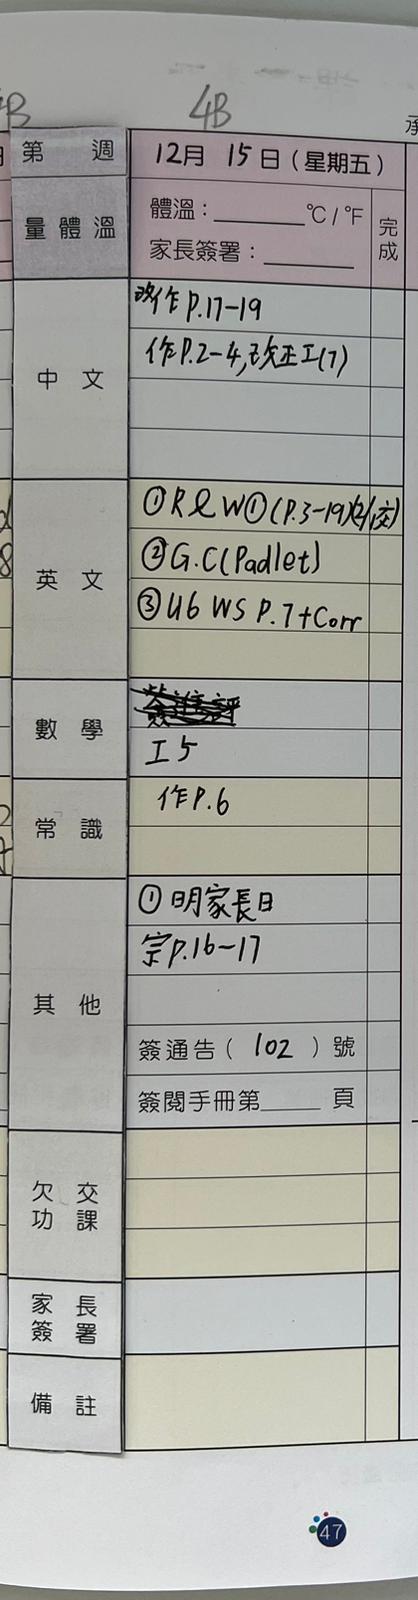 4B
第 週
12月 15日(星期五)
量體溫
體溫:______°C/°F
家長簽署:______
完成
中文
改作P.17-19
作P.2-4,改正工(7)
英文
①R&W①(P.3-19)
②G.C(Padlet)
③U6 WS P.7+Corr
數學
工5
常識
作P.6
其他
①明家長日
宗P.16-17
簽通告(102)號
簽閱手冊第____頁
欠交功課
家長簽署
備註
47